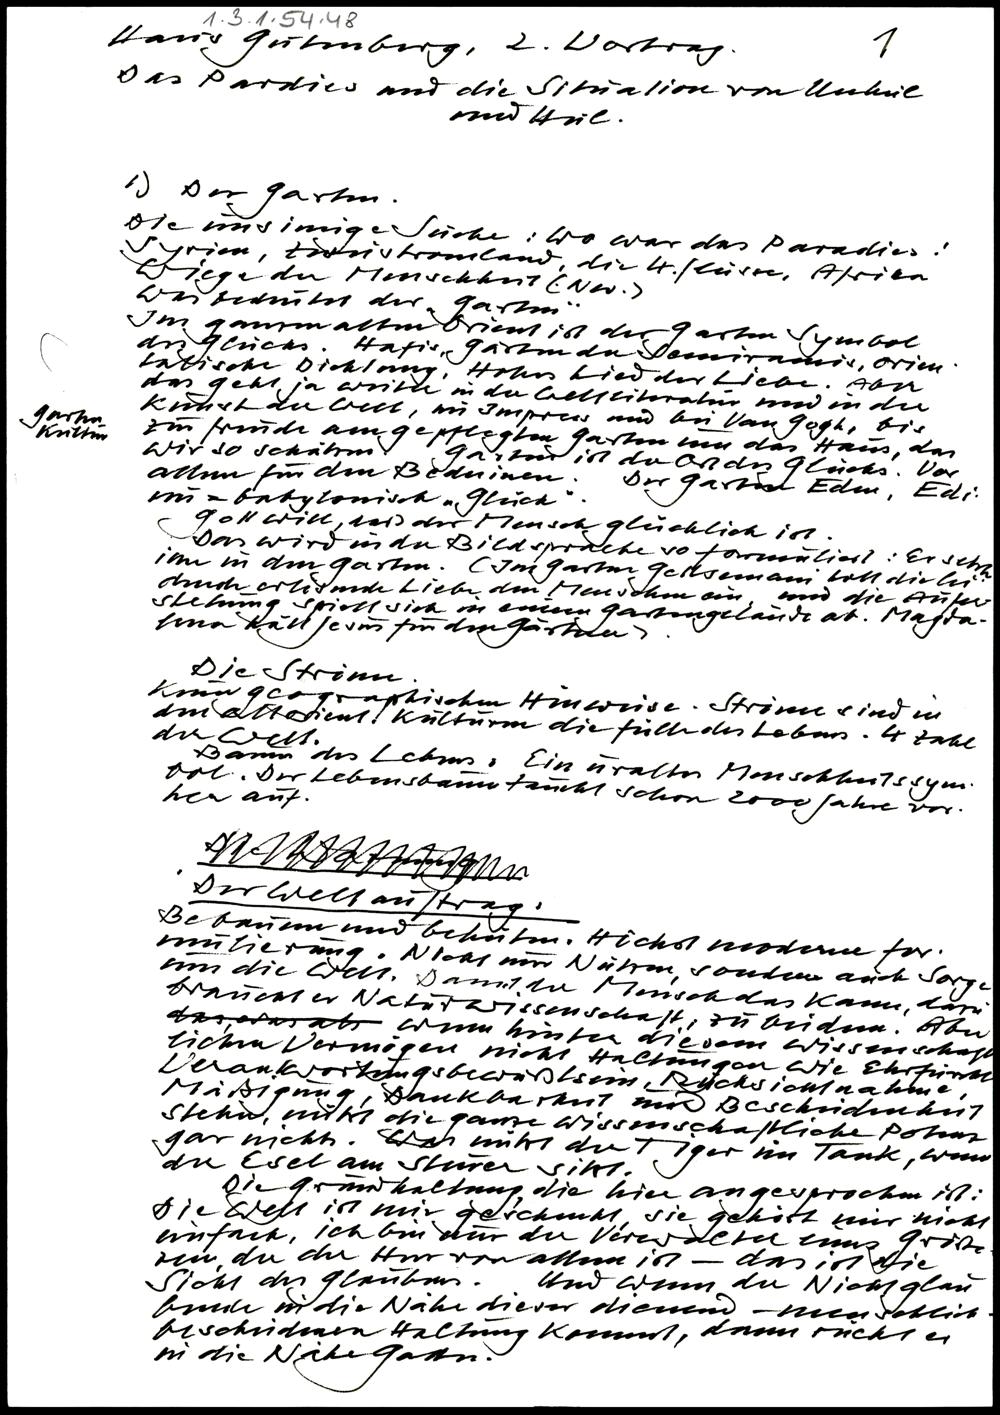 1.3.1.54.48
Haus Gutenberg, 2. Vortrag. 1
Das Pardies und die Situation von Unheil
und Heil.
1) Der Garten.
Die unsinnige Suche: Wo war das Paradies!
Syrien, Zweistromland, die 4 Flüsse, Afrika
Wiege der Menschheit (Nev.)
Was bedeutet der "Garten"
Im ganzen alten Orient ist der Garten Symbol
des Glücks. Hafis, Gärten der Semiramis, orien-
talische Dichtung, Hohes Lied der Liebe. Aber
das geht ja weiter in der Weltliteratur und in der
Kunst der Welt, im Impress und bei Van Gogh, bis
Garten
Kultur
zur Freude am gepflegten Garten um das Haus, das
wir so schätzen. Garten ist der Ort des Glücks. Vor
allem für den Beduinen. Der Garten Eden, Edi-
nu = babylonisch "Glück".
Gott will, dass der Mensch glücklich ist.
Das wird in der Bildsprache so formuliert: Er setzt
ihn in den Garten. (Im Garten Gethsemani holt die lei-
dende erlösende Liebe den Menschen ein, und die Aufer-
stehung spielt sich in einem Gartengelände ab. Magda-
lena hält Jesus für den Gärtner).
Die Ströme.
Keine geographischen Hinweise. Ströme sind in
den altorient. Kulturen die Fülle des Lebens. 4 Zahl
der Welt.
Baum des Lebens. Ein uraltes Menschheitssym-
bol. Der Lebensbaum taucht schon 2000 Jahre vor-
her auf.
Der Weltauftrag.
Bebauen und behüten. Höchst moderne For-
mulierung. Nicht nur Nutzen, sondern auch Sorge
um die Welt. Damit der Mensch das kann, dazu
braucht er Naturwissenschaft, zu beidem. Aber
wenn hinter diesem wissenschaft-
lichen Vermögen nicht Haltungen wie Ehrfurcht
Verantwortungsbewußtsein, Rücksichtnahme,
Mäßigung, Dankbarkeit und Bescheidenheit
stehn, nützt die ganze wissenschaftliche Potenz
gar nichts. Was nützt der Tiger im Tank, wenn
der Esel am Steuer sitzt.
Die Grundhaltung, die hier angesprochen ist:
Die Welt ist mir geschenkt, sie gehört mir nicht
einfach, ich bin nur der Verwalter eines Größe-
ren, der der Herr von allem ist — das ist die
Sicht des Glaubens. Und wenn der Nichtglau
bende in die Nähe dieser dienend-menschlich-
bescheidenen Haltung kommt, dann rückt er
in die Nähe Gottes.